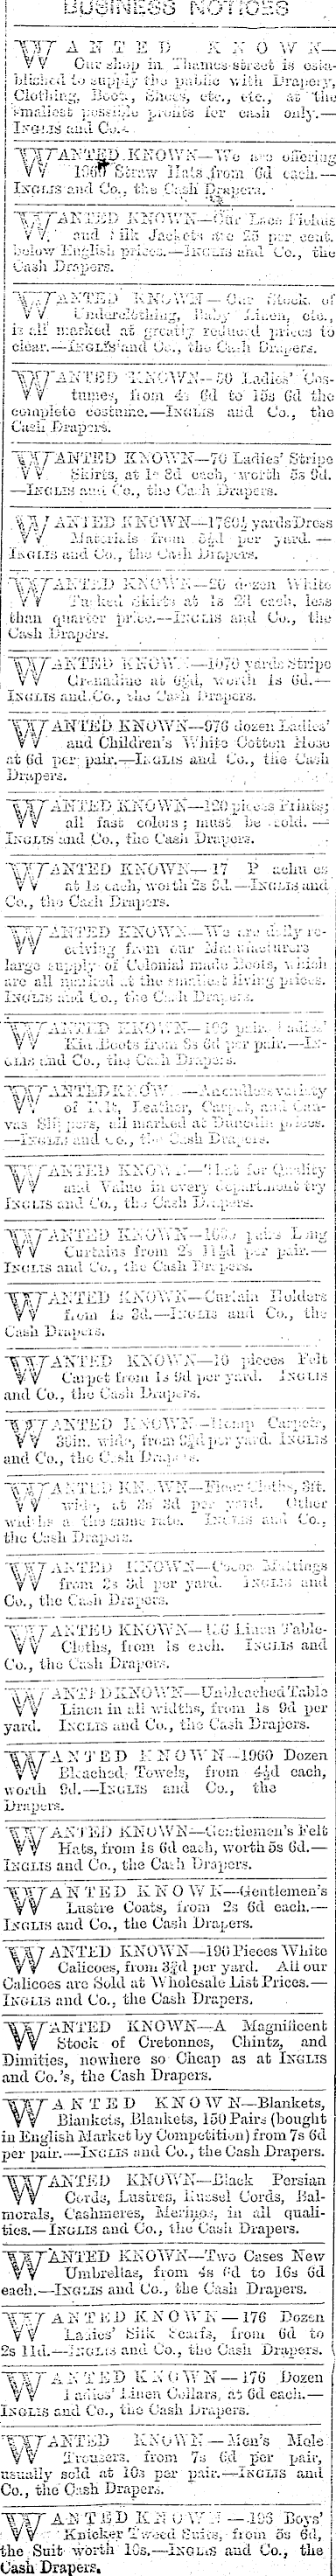 BUSINESS NOTICES
WANTED KNOWN—
Our shop in Thames-street is esta-
blished to supply the public with Drapery,
Clothing, Boots, Shoes, etc., etc., at the
smallest possible profits for cash only.—
INGLIS and Co.
WANTED KNOWN—We are offering
Straw Hats from 6d each.—
INGLIS and Co., the Cash Drapers.
WANTED KNOWN—Our Lace Fichus
and Silk Jackets are 25 per cent.
below English prices.—INGLIS and Co., the
Cash Drapers.
WANTED KNOWN—Our Stock of
Underclothing, Baby Linen, etc.,
is all marked at greatly reduced prices to
clear.—INGLIS and Co., the Cash Drapers.
WANTED KNOWN—50 Ladies' Cos-
tumes, from 4s 6d to 15s 6d the
complete costume.—INGLIS and Co., the
Cash Drapers.
WANTED KNOWN—70 Ladies' Stripe
Skirts, at 1s each, worth 3s 9d.
—INGLIS and Co., the Cash Drapers.
WANTED KNOWN—1760½ yards Dress
Materials from per yard.—
INGLIS and Co., the Cash Drapers.
WANTED KNOWN—20 dozen White
Tucked Skirts at 1s each, less
than quarter price.—INGLIS and Co., the
Cash Drapers.
WANTED KNOWN—1070 yards Stripe
Grenadine at 6½d, worth 1s 6d.—
INGLIS and Co., the Cash Drapers.
WANTED KNOWN—976 dozen Ladies'
and Children's White Cotton Hose
at 6d per pair.—INGLIS and Co., the Cash
Drapers.
WANTED KNOWN—120 pieces Prints;
all fast colors; must be sold.—
INGLIS and Co., the Cash Drapers.
WANTED KNOWN—17
at 1s each, worth 2s 9d.—INGLIS and
Co., the Cash Drapers.
WANTED KNOWN—We are daily re-
ceiving from our Manufacturers
large supply of Colonial made Boots, which
are all marked at the smallest living prices.
INGLIS and Co., the Cash Drapers.
WANTED KNOWN—196 pairs Ladies'
Kid Boots from 8s 6d per pair.—IN-
GLIS and Co., the Cash Drapers.
WANTED KNOWN—An endless variety
of Felt, Leather, Carpet, and Can-
vas Slippers, all marked at Dunedin prices.
—INGLIS and Co., the Cash Drapers.
WANTED KNOWN—That for Quality
and Value in every department try
INGLIS and Co., the Cash Drapers.
WANTED KNOWN— pairs Long
Curtains from 2s 11½d per pair.—
INGLIS and Co., the Cash Drapers.
WANTED KNOWN—Curtain Holders
from 1s 3d.—INGLIS and Co., the
Cash Drapers.
WANTED KNOWN—10 pieces Felt
Carpet from 1s 9d per yard. INGLIS
and Co., the Cash Drapers.
WANTED KNOWN—Hemp Carpets,
36in. wide, from 9½d per yard. INGLIS
and Co., the Cash Drapers.
WANTED KNOWN—Floor Cloths, 3ft.
wide, at 3s 3d per yard. Other
widths at the same rate. INGLIS and Co.,
the Cash Drapers.
WANTED KNOWN—Cocoa Mattings
from 2s 3d per yard. INGLIS and
Co., the Cash Drapers.
WANTED KNOWN— Linen Table-
Cloths, from 1s each. INGLIS and
Co., the Cash Drapers.
WANTED KNOWN—Unbleached Table
Linen in all widths, from 1s 9d per
yard. INGLIS and Co., the Cash Drapers.
WANTED KNOWN—1960 Dozen
Bleached Towels, from 4½d each,
worth 9d.—INGLIS and Co., the
Drapers.
WANTED KNOWN—Gentlemen's Felt
Hats, from 1s 6d each, worth 5s 6d.—
INGLIS and Co., the Cash Drapers.
WANTED KNOWN—Gentlemen's
Lustre Coats, from 2s 6d each.—
INGLIS and Co., the Cash Drapers.
WANTED KNOWN—190 Pieces White
Calicoes, from 3¾d per yard. All our
Calicoes are Sold at Wholesale List Prices.—
INGLIS and Co., the Cash Drapers.
WANTED KNOWN—A Magnificent
Stock of Cretonnes, Chintz, and
Dimities, nowhere so Cheap as at INGLIS
and Co.'s, the Cash Drapers.
WANTED KNOWN—Blankets,
Blankets, Blankets, 150 Pairs (bought
in English Market by Competition) from 7s 6d
per pair.—INGLIS and Co., the Cash Drapers.
WANTED KNOWN—Black Persian
Cords, Lustres, Russel Cords, Bal-
morals, Cashmeres, Merinos, in all quali-
ties.—INGLIS and Co., the Cash Drapers.
WANTED KNOWN—Two Cases New
Umbrellas, from 4s 6d to 16s 6d
each.—INGLIS and Co., the Cash Drapers.
WANTED KNOWN—176 Dozen
Ladies' Silk Scarfs, from 6d to
2s 11d.—INGLIS and Co., the Cash Drapers.
WANTED KNOWN—176 Dozen
Ladies' Linen Collars, at 6d each.—
INGLIS and Co., the Cash Drapers.
WANTED KNOWN—Men's Mole
Trousers, from 7s 6d per pair,
usually sold at 10s per pair.—INGLIS and
Co., the Cash Drapers.
WANTED KNOWN—196 Boys'
Knicker Tweed Suits, from 5s 6d,
the Suit worth 10s.—INGLIS and Co., the
Cash Drapers.